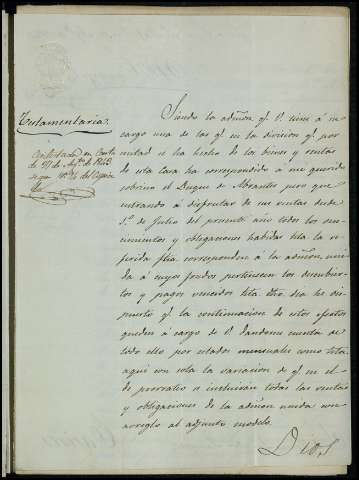 Testamentaria.
Contestada en Carta
de 27 de Ag.to de 1843
Siendo la admon q.e V. tiene á su
cargo una de las q.e en la division q.e por
mitad se ha hecho de los bienes y rentas
de esta Casa ha correspondido a mi querido
sobrino el Duque de Abrantes pero que
entrando á disfrutar de sus rentas desde
1.o de Julio del presente año todos los ven-
cimientos y obligaciones habidas hta. la re-
ferida fha. corresponden a la admon uni-
da á cuyos fondos pertenecen los descubier-
tos y pagos vencidos hta. dho. dia he dis-
puesto q.e la continuacion de estos efectos
queden á cargo de V. dandome cuenta de
todo ello por estados mensuales como hta.
aqui con sola la variacion de q.e en el
de prorrateo se incluiran todas las rentas
y obligaciones de la admon unida con
arreglo al adjunto modelo.
Dios